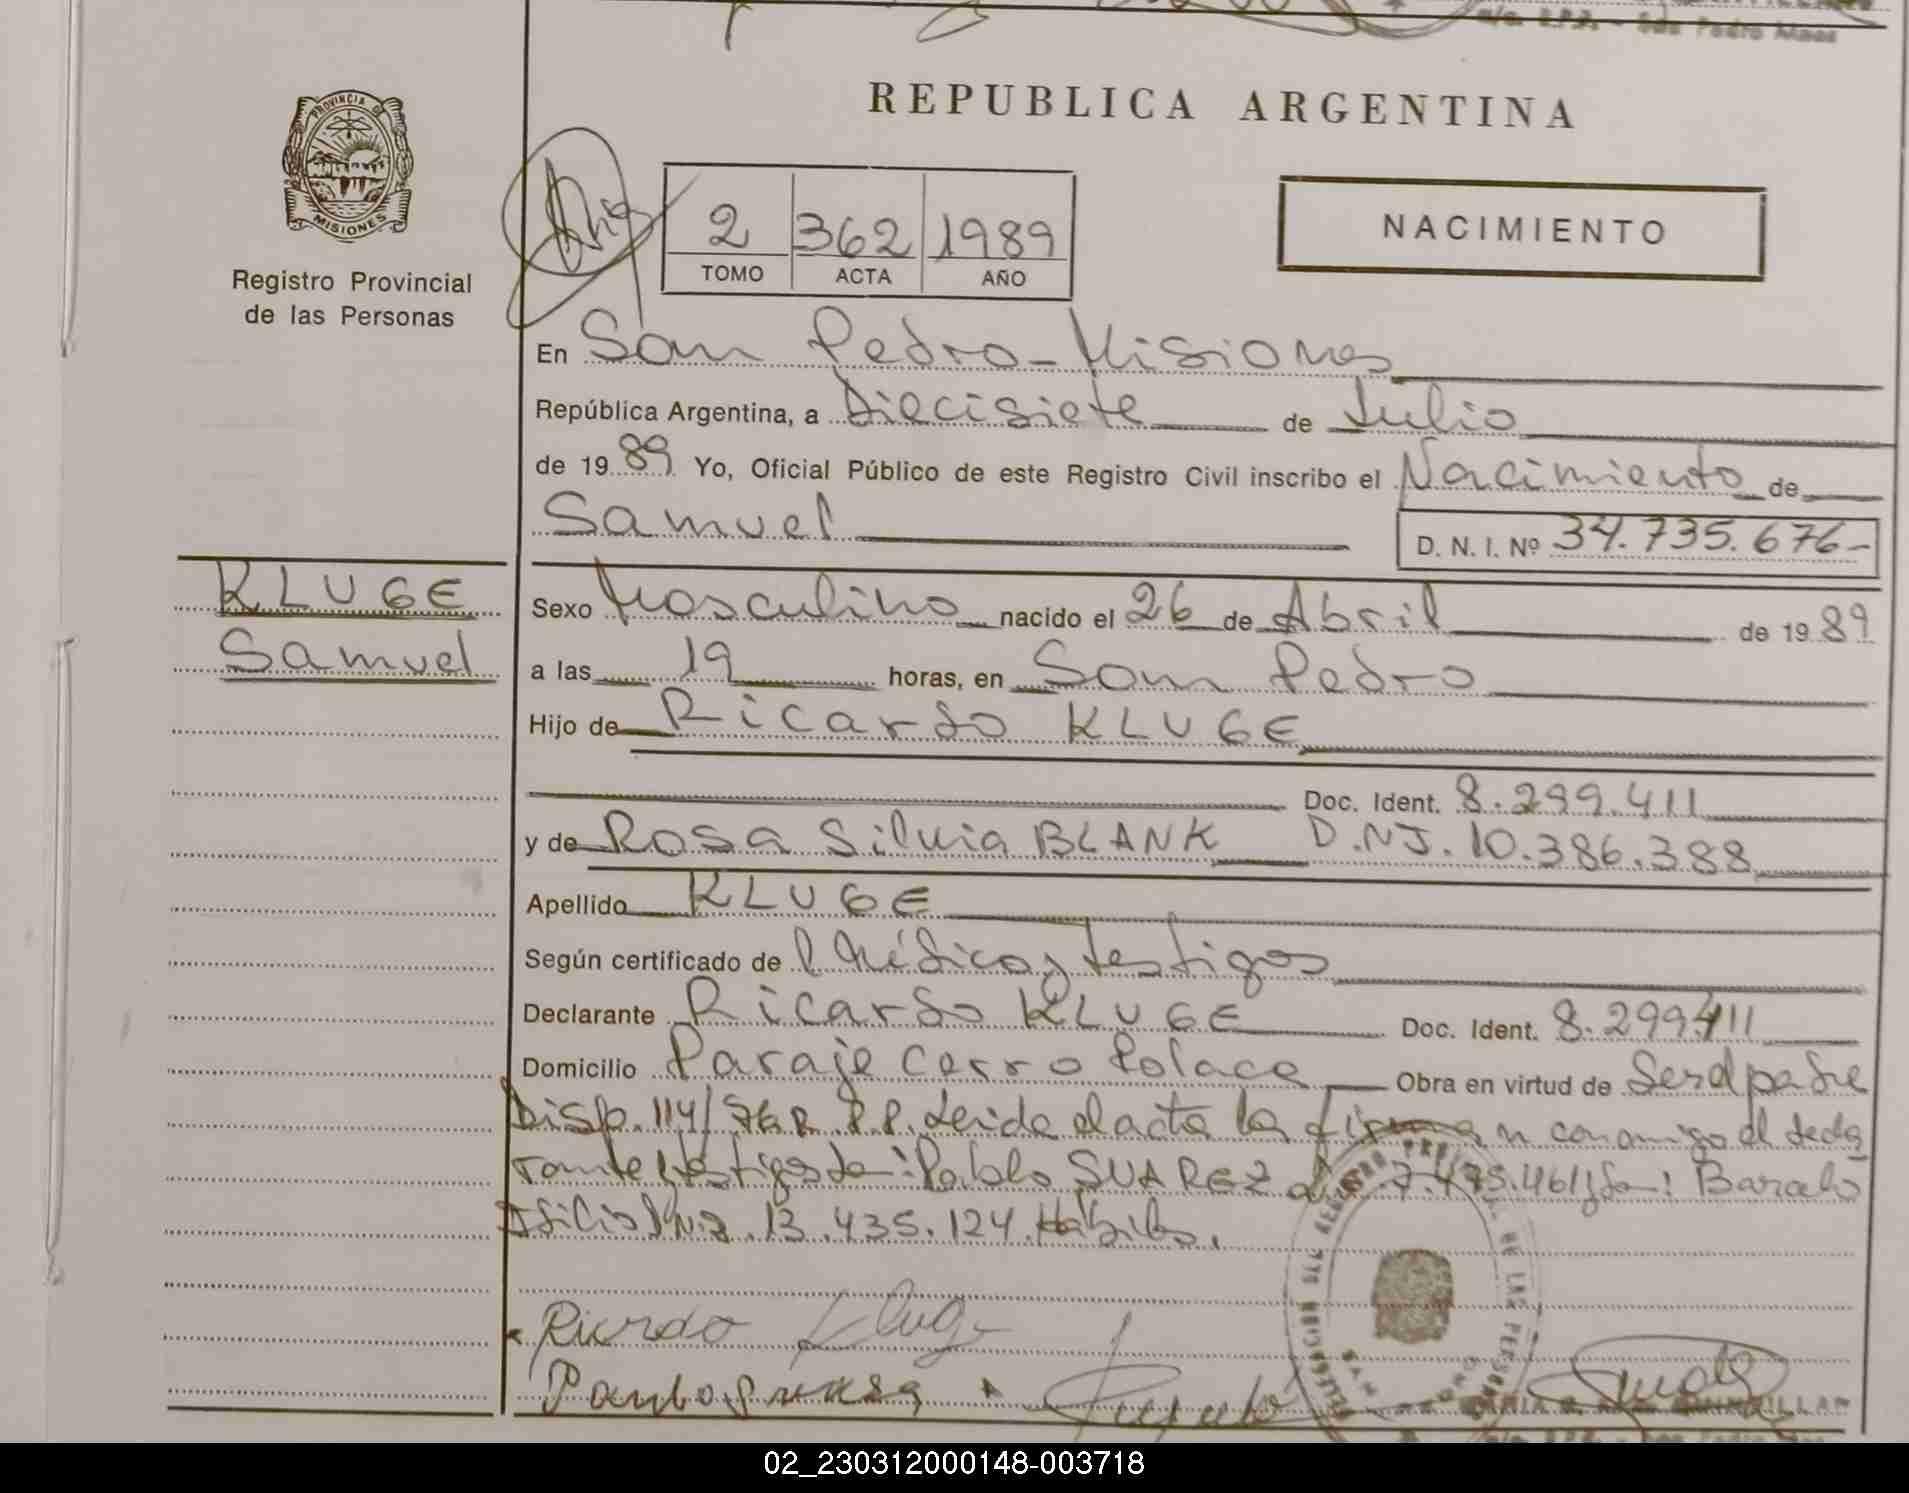 REPUBLICA ARGENTINA
PROVINCIA DE
MISIONES
Registro Provincial
de las Personas
2 362 1989
TOMO ACTA AÑO
NACIMIENTO
En San Pedro-Misiones
República Argentina, a Diecisiete de Julio
de 1989 Yo, Oficial Público de este Registro Civil inscribo el Nacimiento de
Samuel
D. N. I. Nº 34.735.676-
KLUGE
Samuel
Sexo Masculino nacido el 26 de Abril de 1989
a las 19 horas, en San Pedro
Hijo de Ricardo KLUGE
Doc. Ident. 8.299.411
y de Rosa Silvia BLANK D.N.I. 10.386.388
Apellido KLUGE
Según certificado de l Médico y testigos
Declarante Ricardo KLUGE Doc. Ident. 8.299411
Domicilio Paraje Cerro Polaco Obra en virtud de Ser el padre
Disp. 114/76 R.P.P. Leida el acta la firman conmigo el decla
rante y testigos Pablo SUAREZ 7.475.461 Baralo
13.435.124. Hábiles.
Ricardo Kluge
02_230312000148-003718